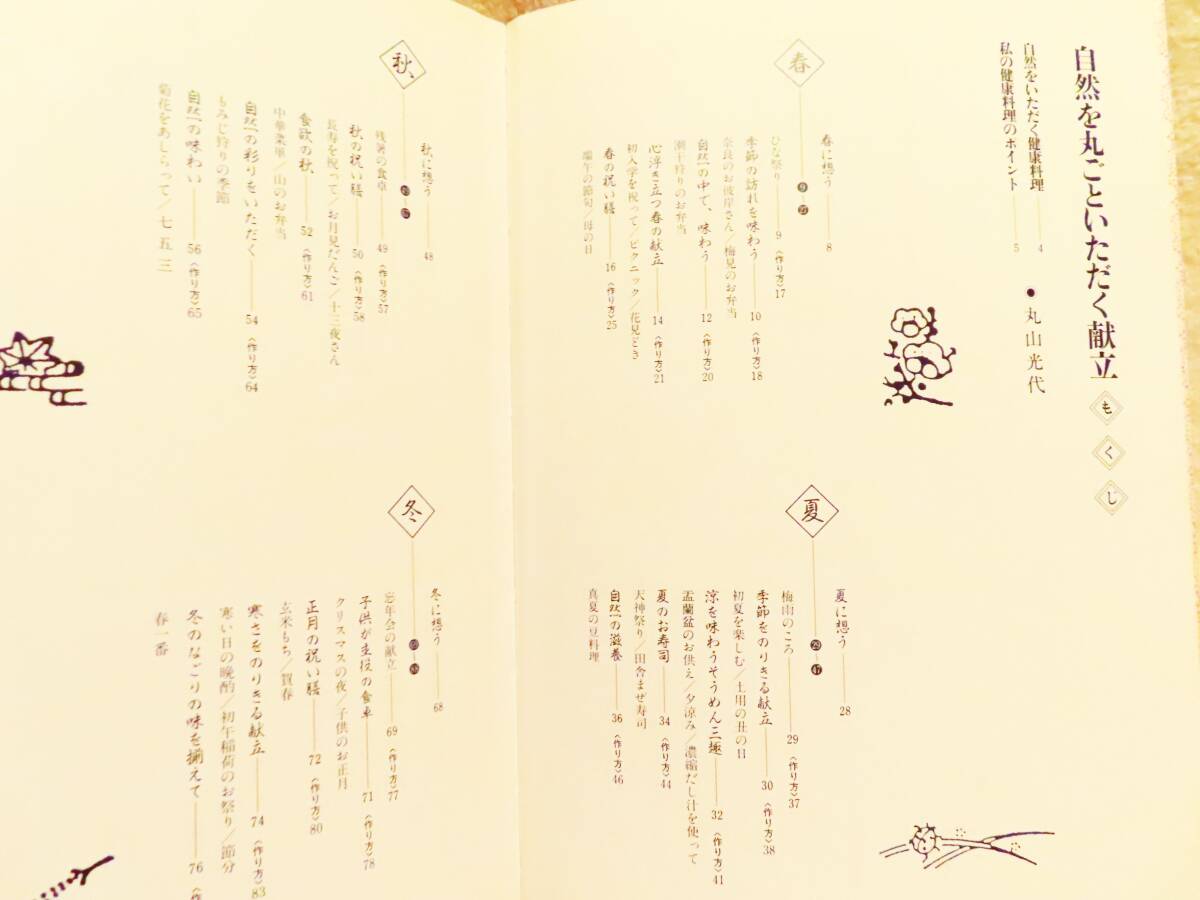 自然を丸ごといただく献立
もくし
自然をいただく健康料理 4
私の健康料理のポイント 5
●丸山光代
春
9 27
春に想う 8
ひな祭り 9 〈作り方〉17
季節の訪れを味わう 10 〈作り方〉18
奈良のお彼岸さん/梅見のお弁当
自然の中で、味わう 12 〈作り方〉20
潮干狩りのお弁当
心浮き立つ春の献立 14 〈作り方〉21
初入学を祝って/ピクニック/花見どき
春の祝い膳 16 〈作り方〉25
端午の節句/母の日
夏
29 47
夏に想う 28
梅雨のころ 29 〈作り方〉37
季節をのりきる献立 30 〈作り方〉38
初夏を楽しむ/土用の丑の日
涼を味わうそうめん三趣 32 〈作り方〉41
盂蘭盆のお供え/夕涼み/濃縮だし汁を使って
夏のお寿司 34 〈作り方〉44
天神祭り/田舎まぜ寿司
自然の滋養 36 〈作り方〉46
真夏の豆料理
秋
秋に想う 48
残暑の食卓 49 〈作り方〉57
秋の祝い膳 50 〈作り方〉58
長寿を祝って/お月見だんご/十三夜さん
食欲の秋 52 〈作り方〉61
中華菜単/山のお弁当
自然の彩りをいただく 54 〈作り方〉64
もみじ狩りの季節
自然の味わい 56 〈作り方〉65
菊花をあしらって/七五三
冬
冬に想う 68
忘年会の献立 69 〈作り方〉77
子供が主役の食卓 71 〈作り方〉78
クリスマスの夜/子供のお正月
正月の祝い膳 72 〈作り方〉80
玄米もち/賀春
寒さをのりきる献立 74 〈作り方〉83
寒い日の晩酌/初午稲荷のお祭り/節分
冬のなごりの味を揃えて 76 〈作
春一番